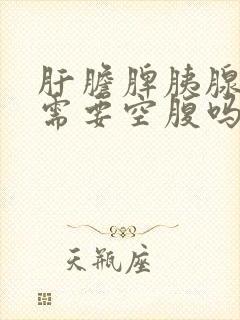 肝膽脾胰腺
需要空腹吗
天瓶座